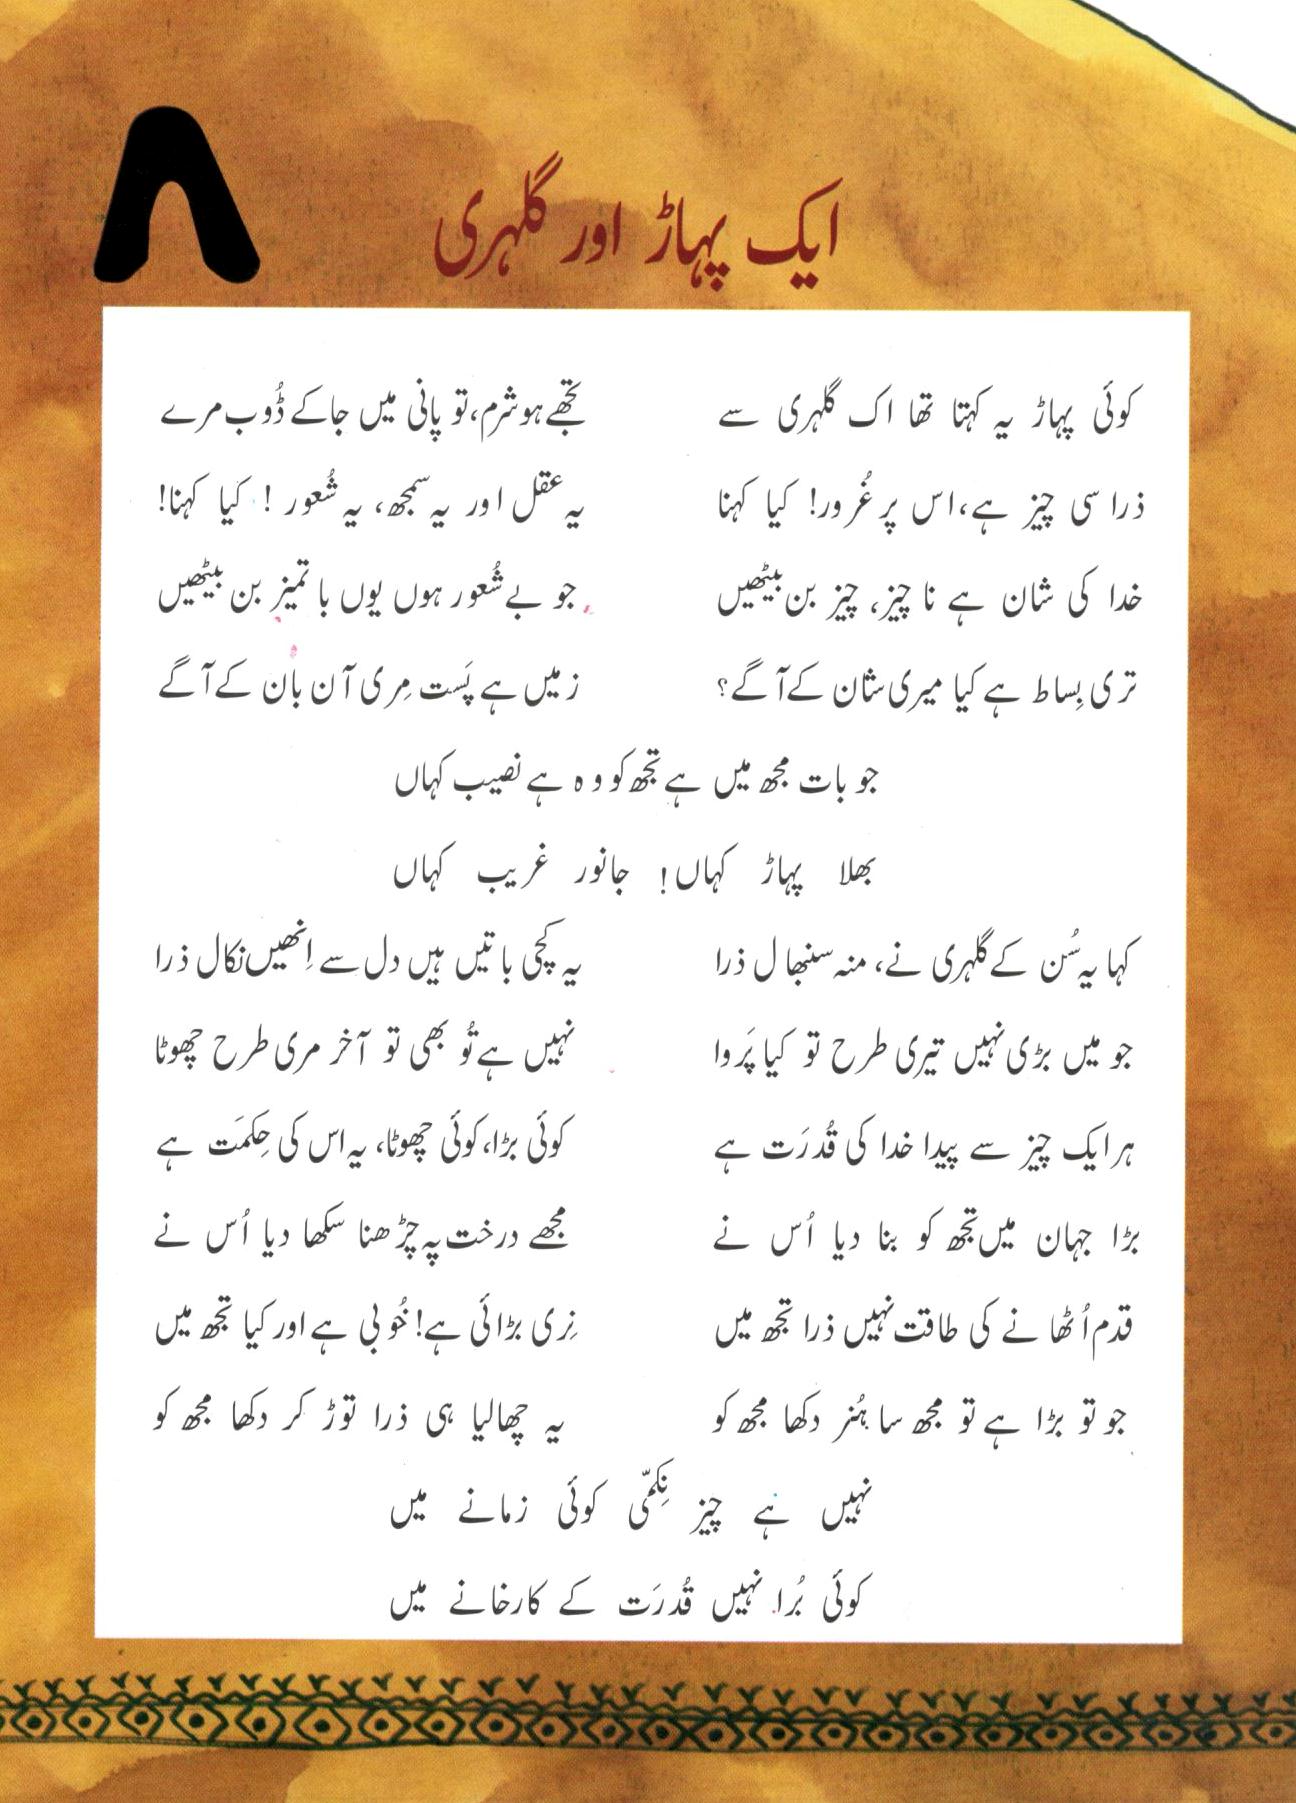 ۸
ایک پہاڑ اور گلہری
کوئی پہاڑ یہ کہتا تھا اک گلہری سے تجھے ہو شرم، تو پانی میں جا کے ڈُوب مرے
ذرا سی چیز ہے، اس پر غُرور! کیا کہنا یہ عقل اور یہ سمجھ، یہ شُعور! کیا کہنا!
خدا کی شان ہے نا چیز، چیز بن بیٹھیں جو بے شُعور ہوں یوں با تمیز بن بیٹھیں
تری بِساط ہے کیا میری شان کے آگے؟ زمیں ہے پَست مِری آن بان کے آگے
جو بات مجھ میں ہے تجھ کو وہ ہے نصیب کہاں
بھلا پہاڑ کہاں! جانور غریب کہاں
کہا یہ سُن کے گلہری نے، منہ سنبھال ذرا یہ کچی باتیں ہیں دل سے اِنھیں نکال ذرا
جو میں بڑی نہیں تیری طرح تو کیا پَروا نہیں ہے تُو بھی تو آخر مری طرح چھوٹا
ہر ایک چیز سے پیدا خدا کی قُدرَت ہے کوئی بڑا، کوئی چھوٹا، یہ اس کی حِکمَت ہے
بڑا جہان میں تجھ کو بنا دیا اُس نے مجھے درخت پہ چڑھنا سکھا دیا اُس نے
قدم اُٹھانے کی طاقت نہیں ذرا تجھ میں نِری بڑائی ہے! خُوبی ہے اور کیا تجھ میں
جو تو بڑا ہے تو مجھ سا ہُنر دکھا مجھ کو یہ چھالیا ہی ذرا توڑ کر دکھا مجھ کو
نہیں ہے چیز نِکمّی کوئی زمانے میں
کوئی بُرا نہیں قُدرَت کے کارخانے میں